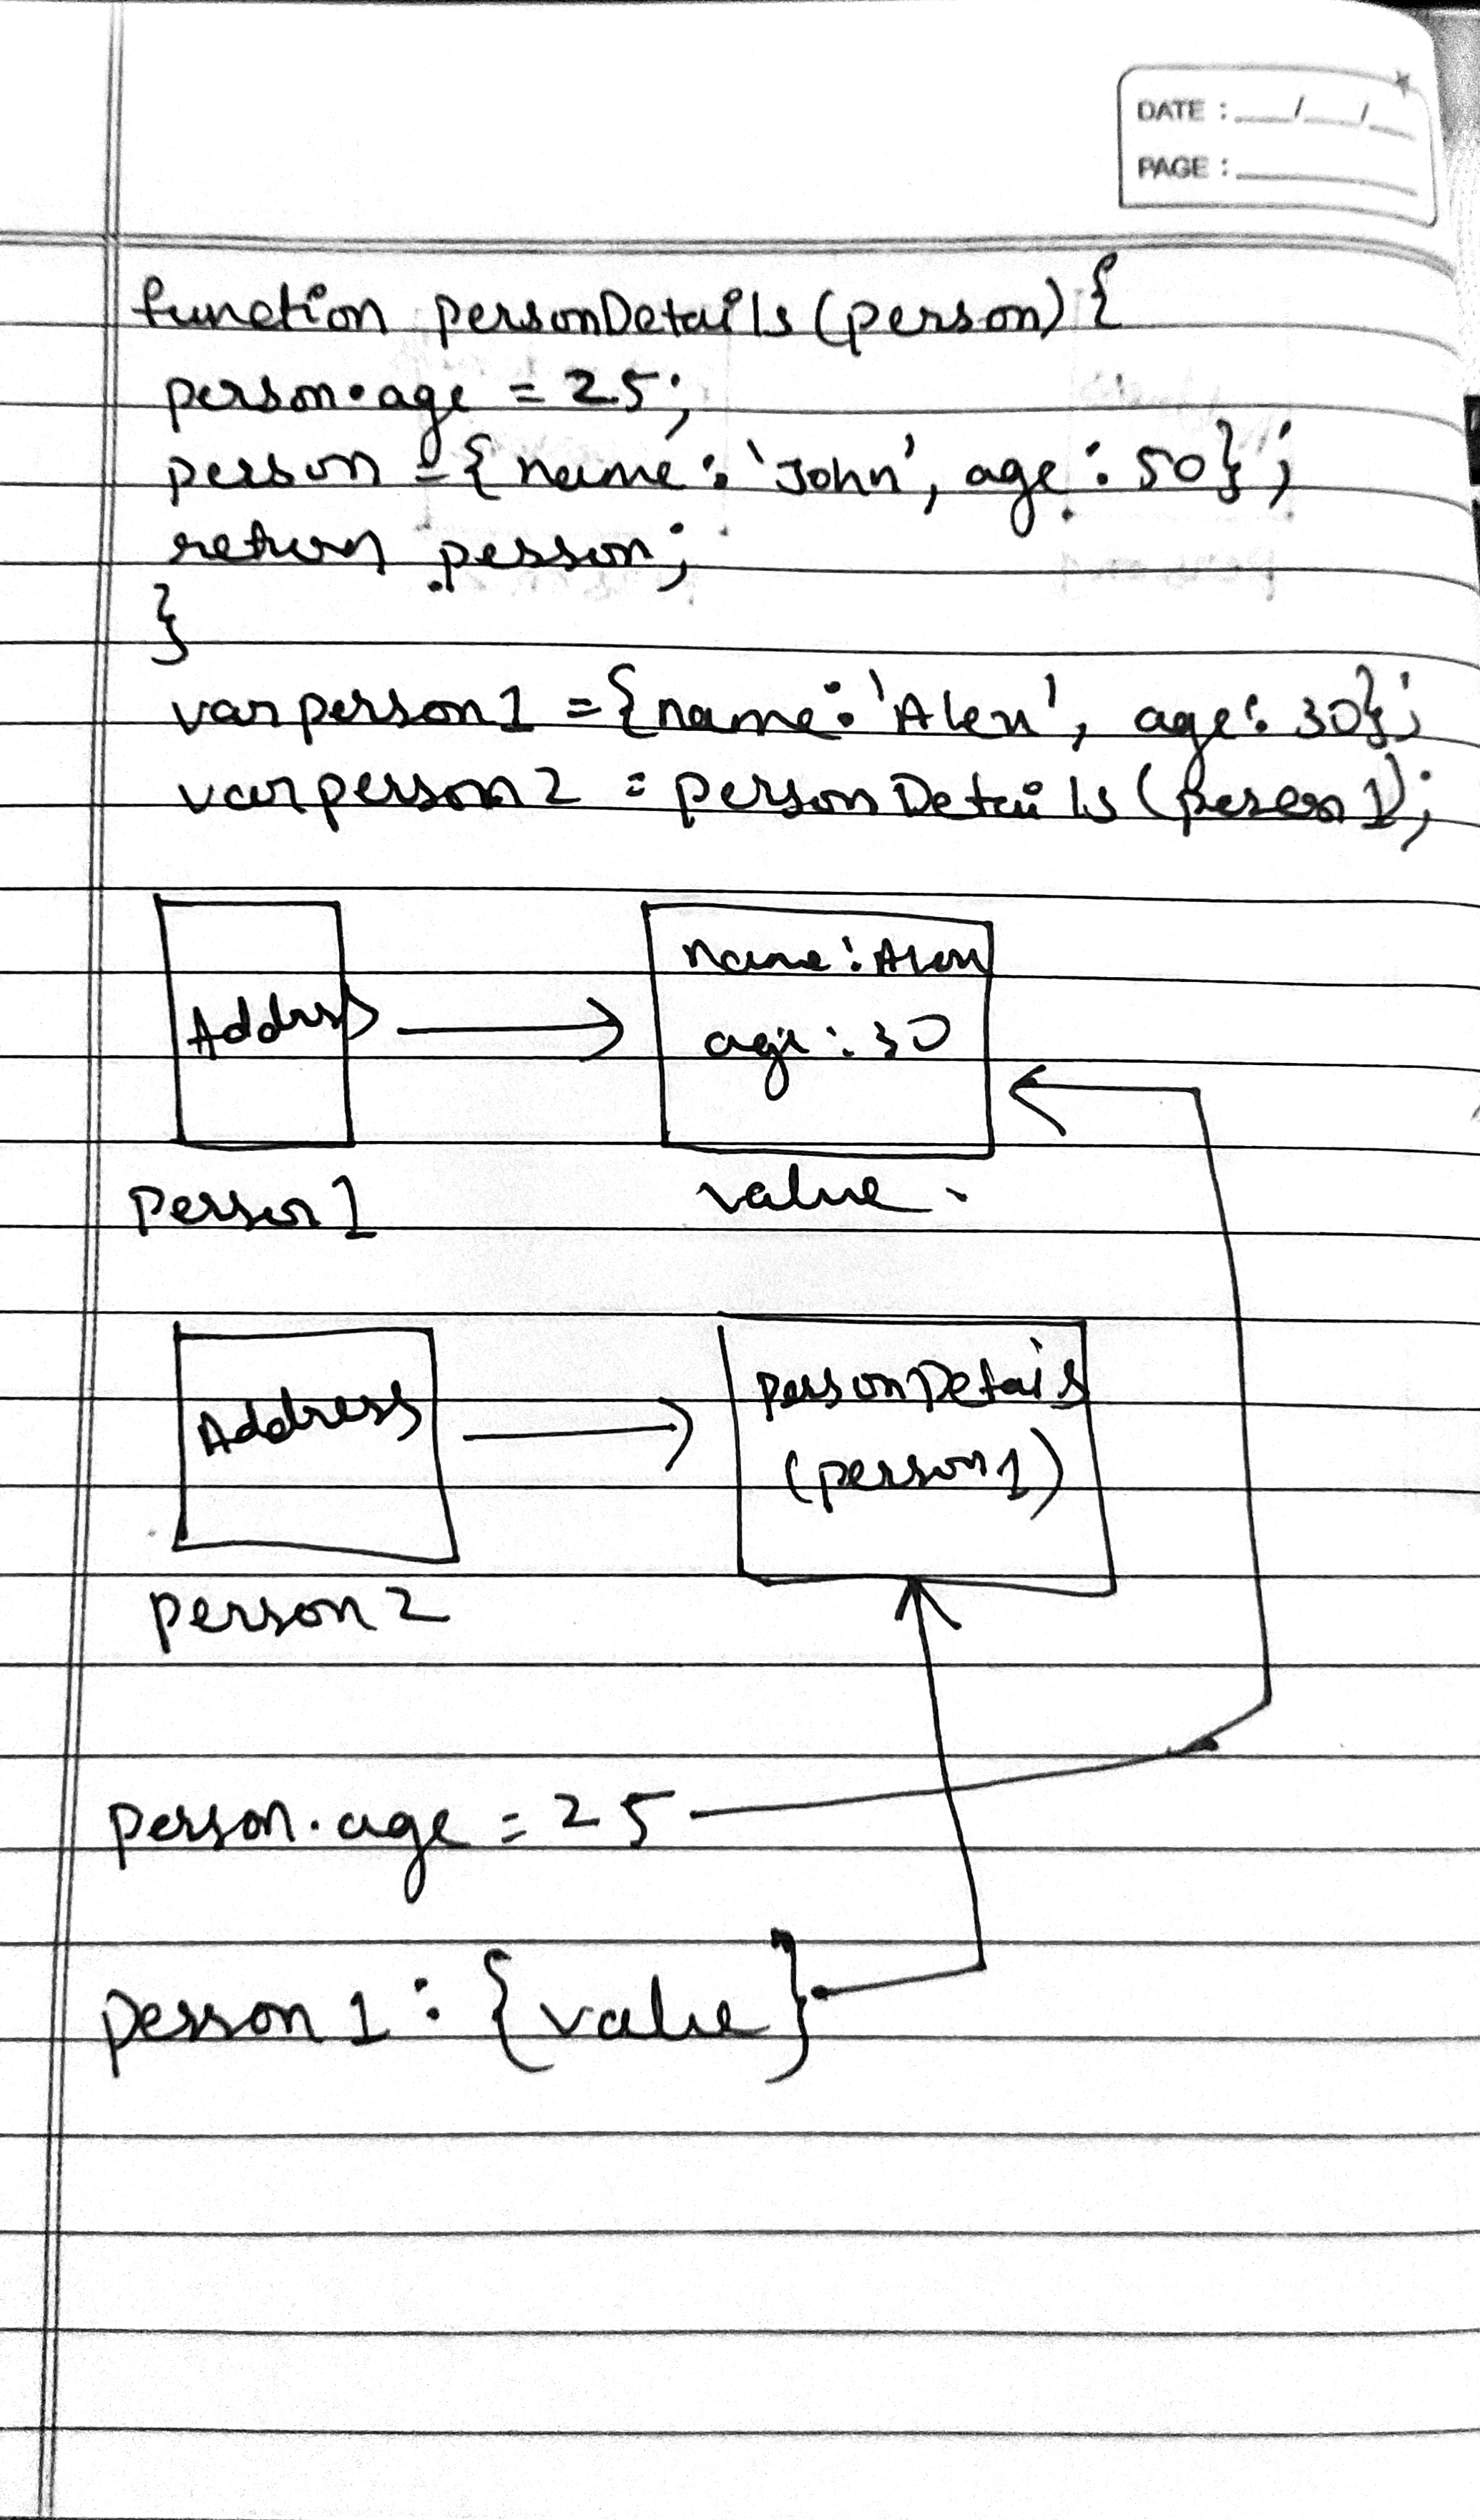 DATE : __/__/__
PAGE : ______
function personDetails(person) {
person.age = 25;
person = { name : 'John', age : 50} ;
return person;
}
var person1 = {name : 'Alex', age : 30};
var person2 = personDetails (person1);
name : Alex
Address
age : 30
Person1
value
personDetails
Address
(person1)
person2
person.age = 25
person1 : {value}